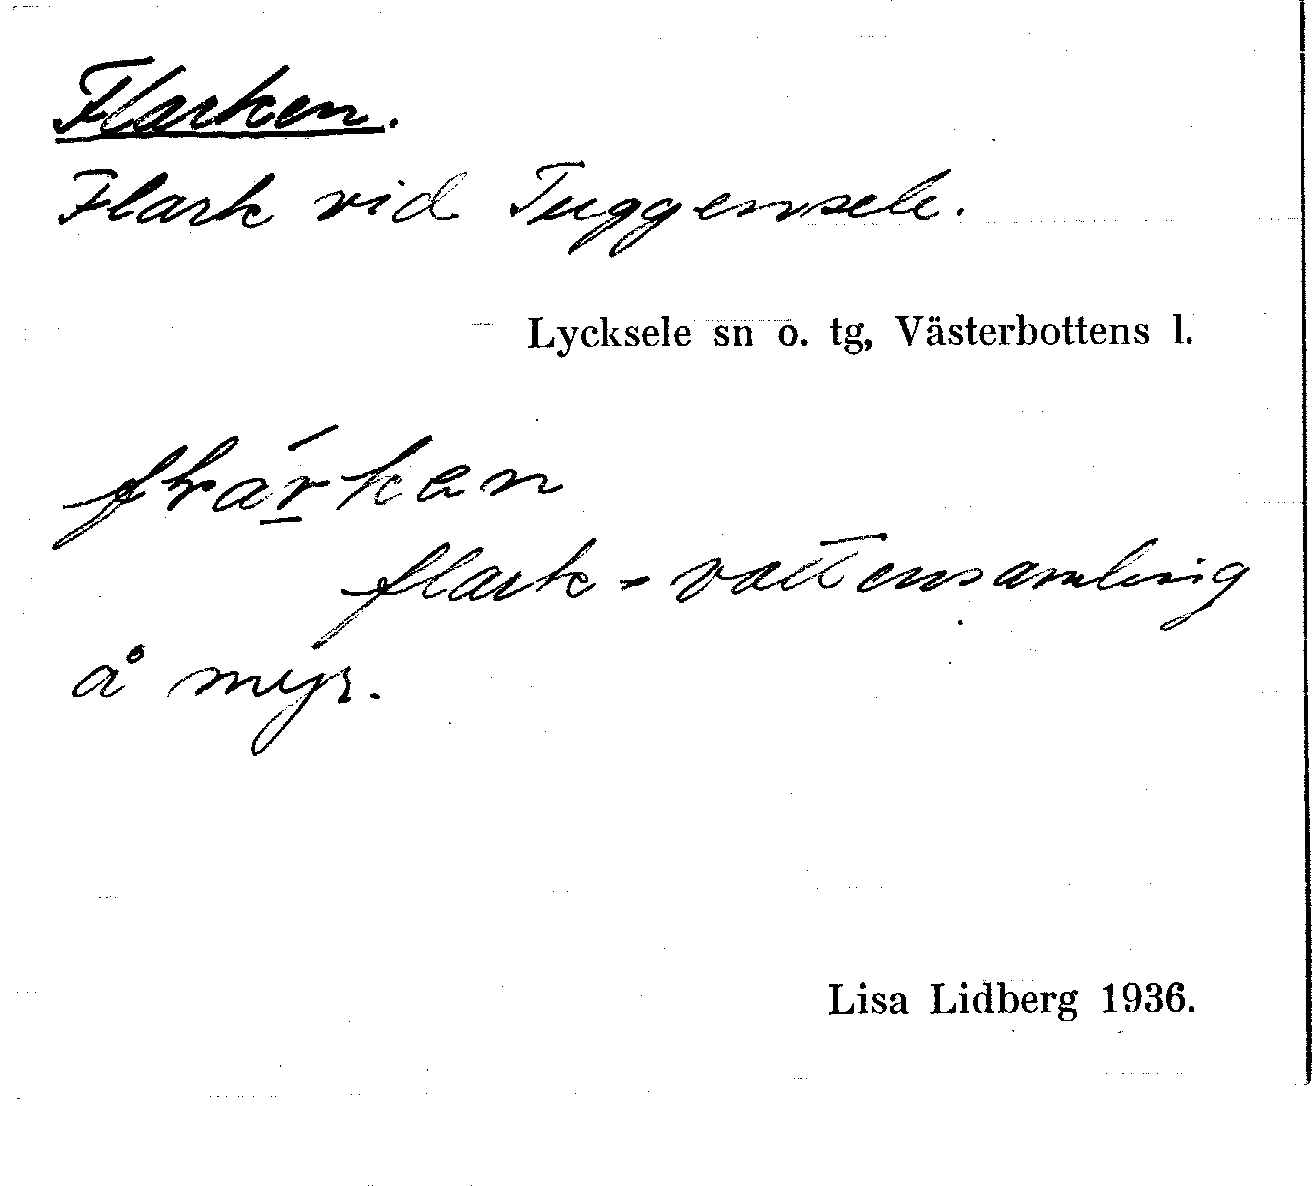 Flarken.
Flark vid Tuggensele.
Lycksele sn o. tg, Västerbottens l.
flark = vattensamling
å myr.
Lisa Lidberg 1936.